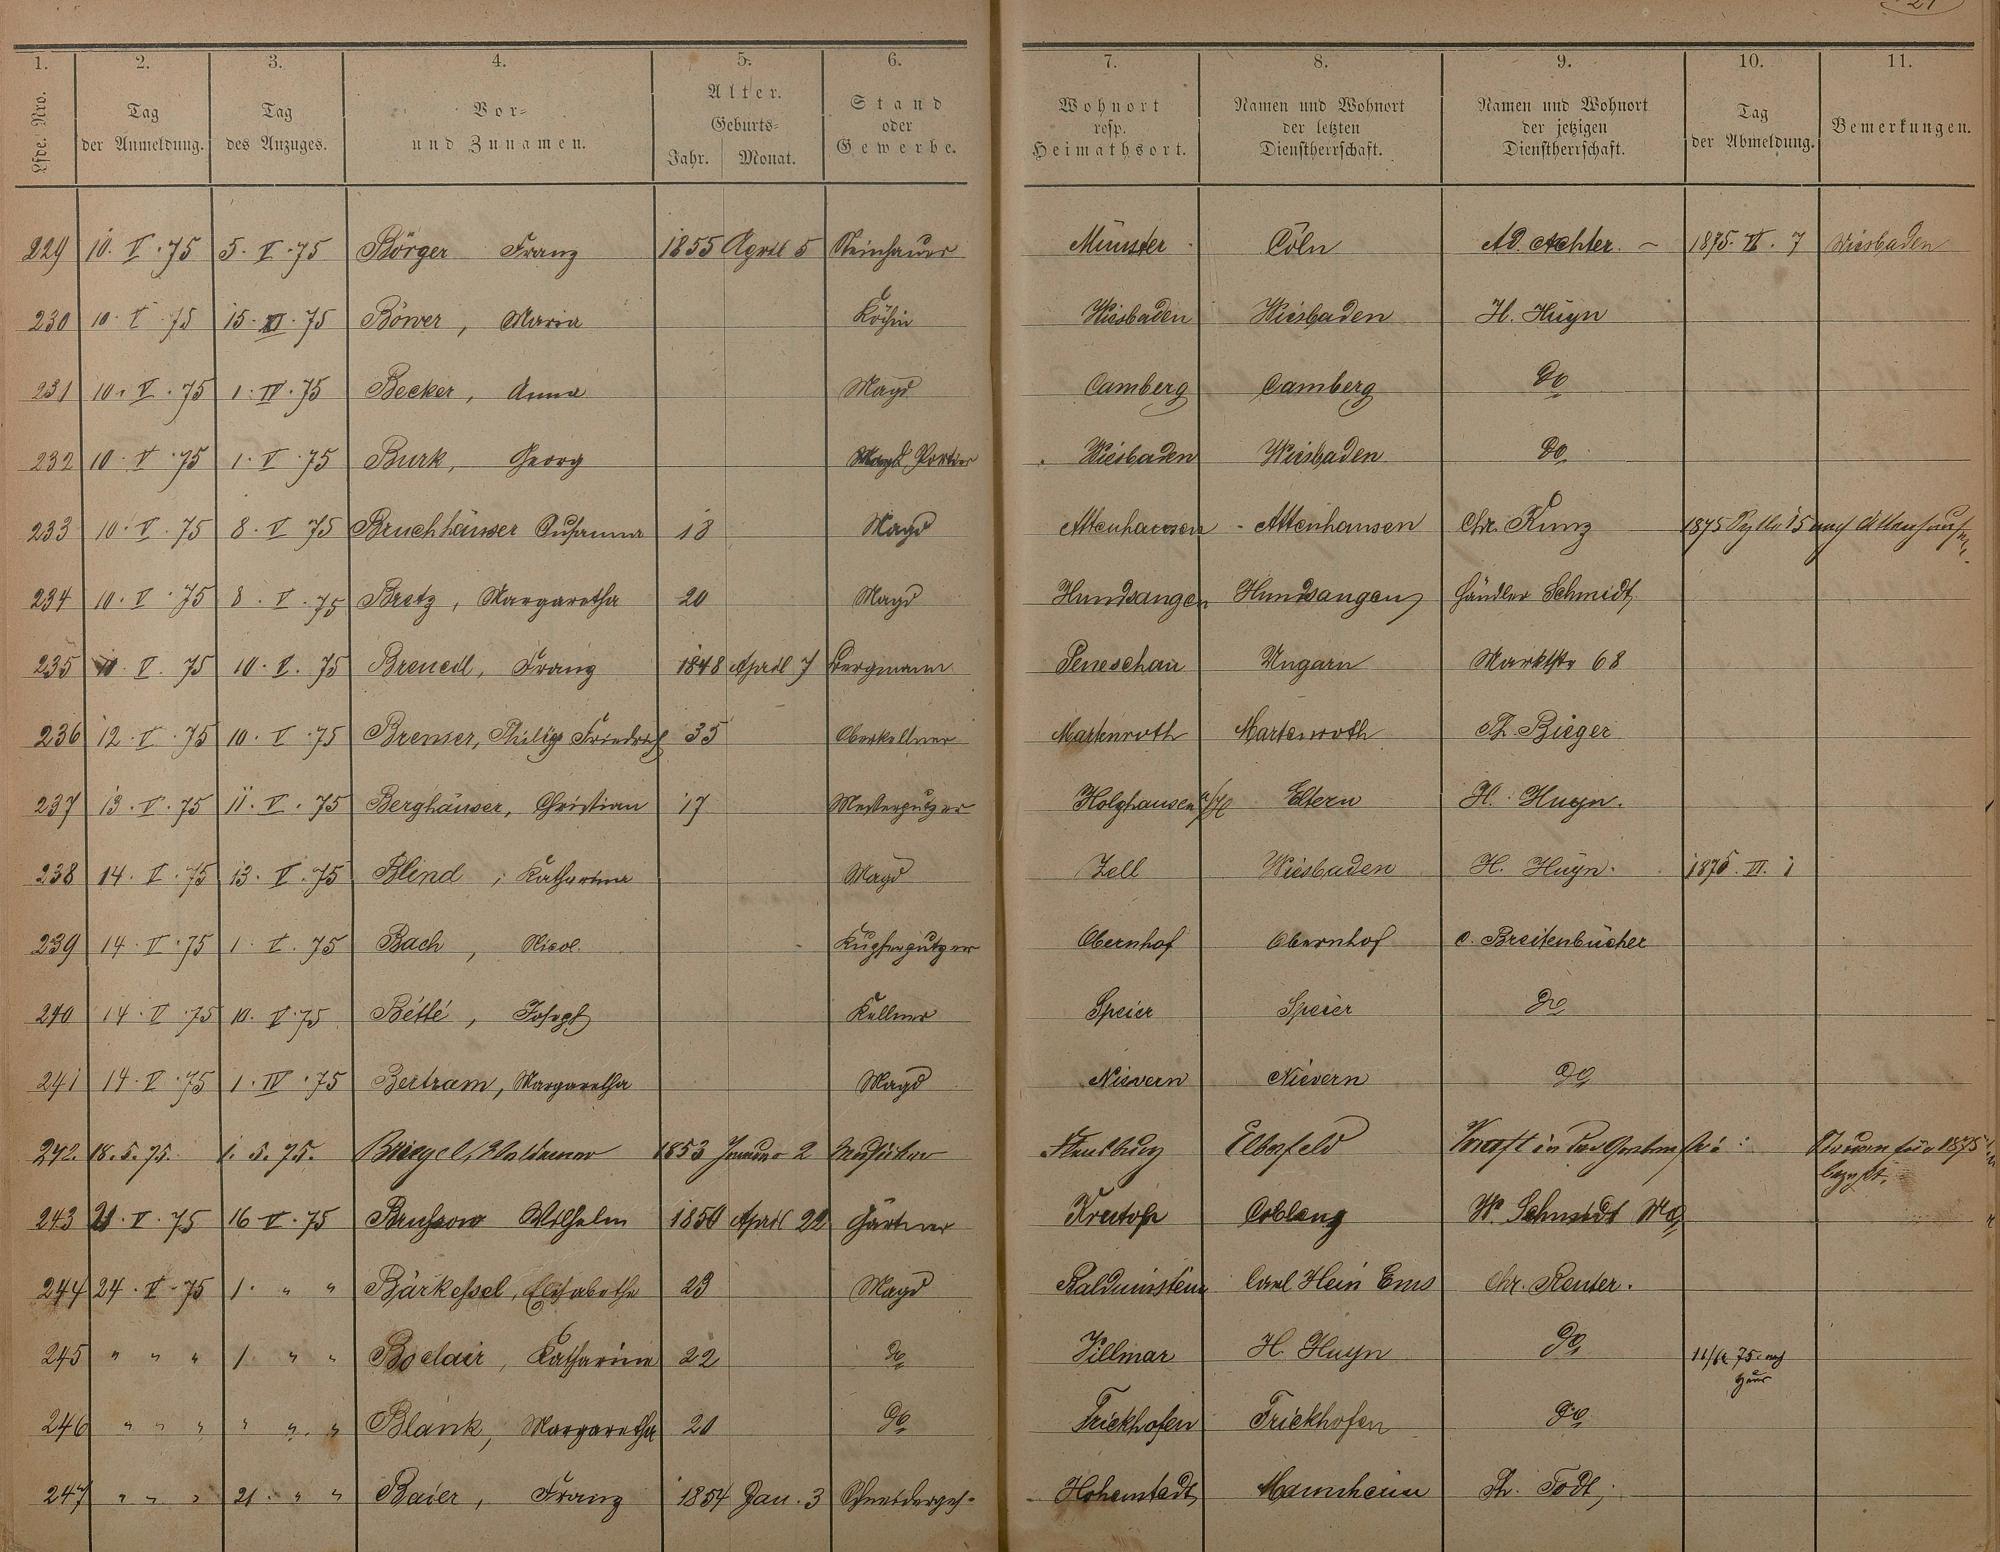 1. 2. 3. 4. 5. 6. 7. 8. 9. 10. 11.
Lfde. Nro. Tag der Anmeldung. Tag des Anzuges. Vor- und Zunamen. Alter. Geburts- Jahr. Monat. Stand oder Gewerbe. Wohnort resp. Heimathsort. Namen und Wohnort der letzten Dienstherrschaft. Namen und Wohnort der jetzigen Dienstherrschaft. Tag der Abmeldung. Bemerkungen.
229 10. V. 75 5. V. 75 Börger Franz 1855 April 5 Steinhauer Münster Cöln Ad. Achter 1875. VI. 7 Wiesbaden
230 10. V. 75 15. 75 Böwer, Maria Köchin Wiesbaden Wiesbaden H. Huyn
231 10. V. 75 1. IV. 75 Becker, Anna Magd Camberg Camberg do
232 10. V. 75 1. V. 75 Burk, Georg Portier Wiesbaden Wiesbaden do
233 10. V. 75 8. V. 75 Bruchhäuser Susanna 18 Magd Attenhausen Attenhausen Chr. Kunz 1875 15 nach Attenhausen
234 10. V. 75 8. V. 75 Bretz, Margaretha 20 Magd Hundsangen Hundsangen Händler Schmidt
235 10. V. 75 10. V. 75 Franz 1848 April 7 Bergmann Peneschau Ungarn Marktstr 68
236 12. V. 75 10. V. 75 Bremser, Philipp Friedrich 35 Oberkellner Martenroth Martenroth Th. Bieger
237 13. V. 75 11. V. 75 Berghäuser, Christian 17 Messerputzer Holzhausen a/H Eltern H. Huyn.
238 14. V. 75 13. V. 75 Blind, Katharina Magd Zell Wiesbaden H. Huyn. 1875. VI. 1
239 14. V. 75 1. V. 75 Bach, Nicol. Kupferputzer Obernhof Obernhof C. Breitenbücher
240 14. V. 75 10. V. 75 Bétté, Joseph Kellner Speier Speier do
241 14. V. 75 1. IV. 75 Bertram, Margaretha Magd Nievern Nievern do
242. 18. 5. 75. 1. 5. 75. Briegel, Waldemar 1853 Januar 2 Flensburg Elberfeld Kraft in der 1875
243 21. V. 75 16 V. 75 Wilhelm 1850 April 22 Gärtner Coblenz W. Schmidt
244 24. V. 75 1. " " Bärkessel, Elisabethe 23 Magd Balduinstein Carl Hein Ems Chr. Reuter.
245 " " " 1. " " Boclair, Katharine 22 do Villmar H. Huyn do 75. nach
Haus
246 " " " " " " Blank, Margaretha 20 do Frickhofen Frickhofen do
247 " " " 21. " " Baier, Franz 1854 Jan. 3 Schneidergeh. Hohenstadt Mannheim Ph. Todt,